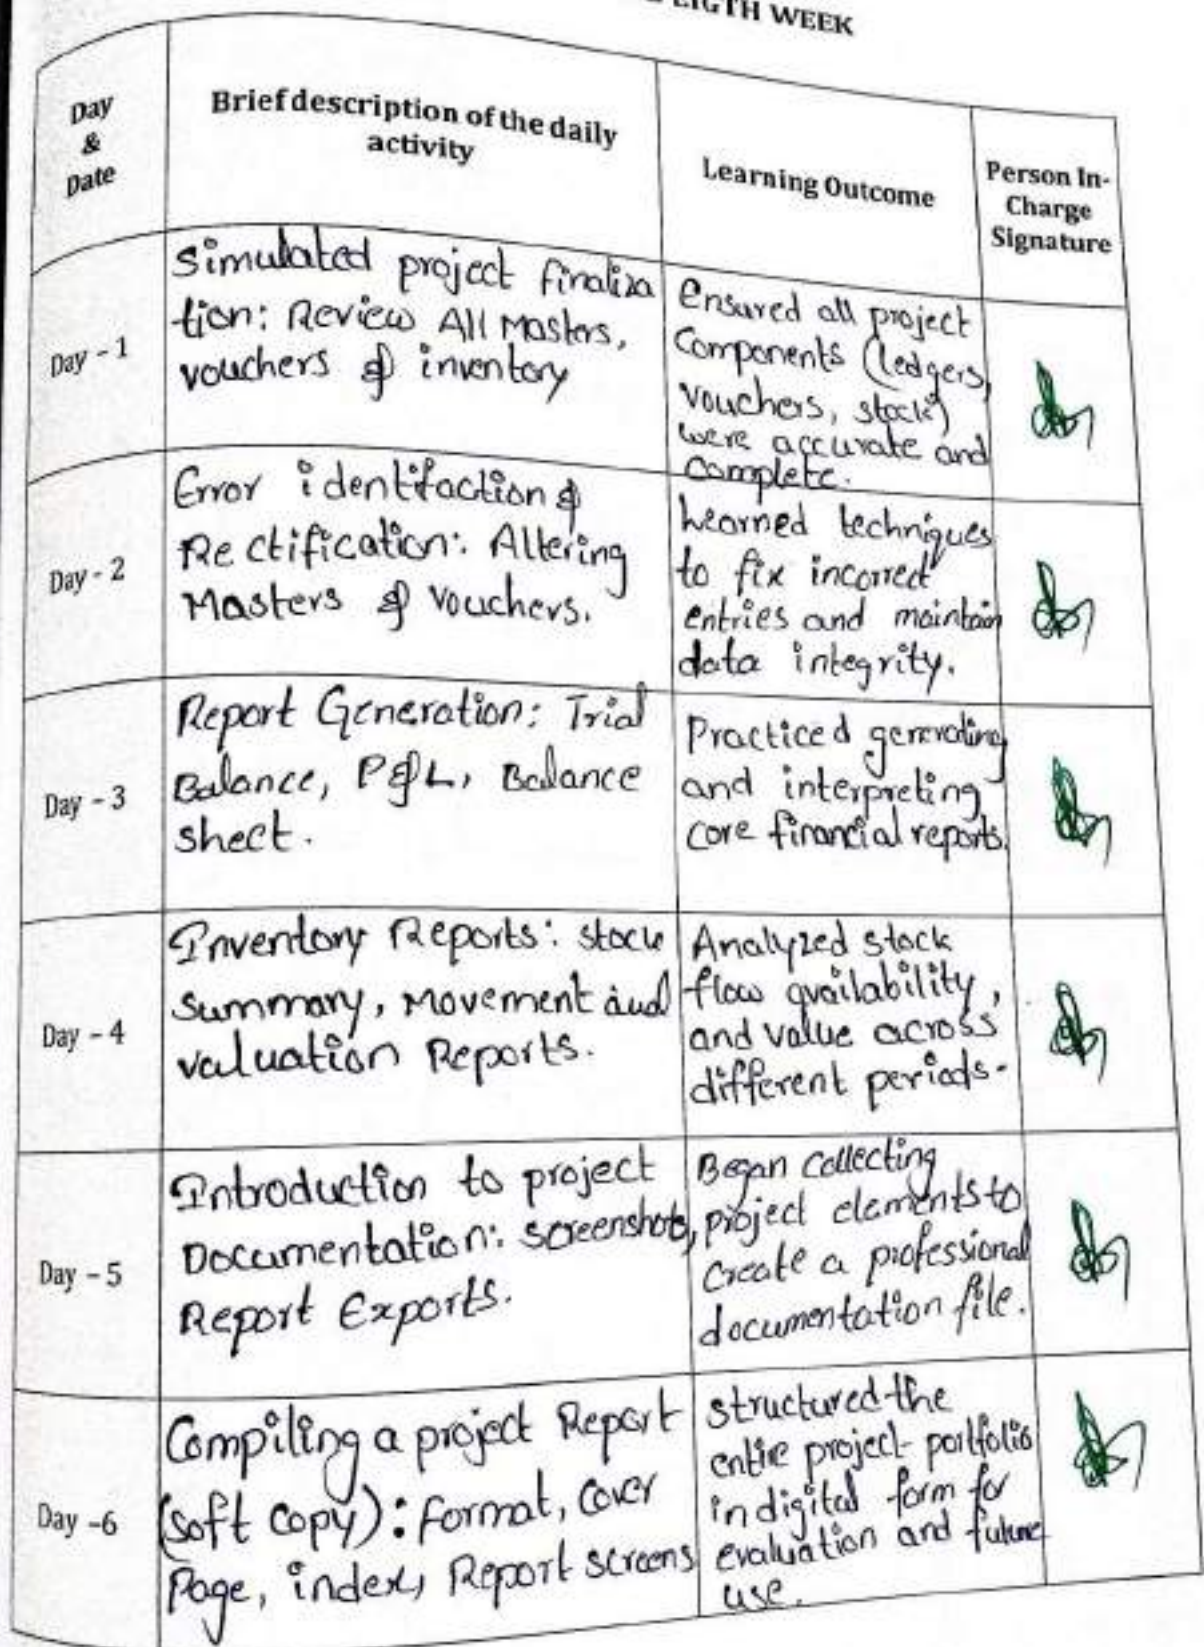 WEEK
Day
&
Date
Brief description of the daily
activity
Learning Outcome
Person In-
Charge
Signature
Day - 1
Simulated project finaliza
tion: Review All Masters,
vouchers & inventory
Ensured all project
Components (ledgers,
vouchers, stock)
were accurate and
Complete.
Day - 2
Error identifaction &
Rectification: Altering
Masters & Vouchers.
Learned techniques
to fix incorrect
entries and maintain
data integrity.
Day - 3
Report Generation: Trial
Balance, P&L, Balance
sheet.
Practiced generating
and interpreting
core financial reports.
Day - 4
Inventory Reports: stock
summary, Movement and
valuation Reports.
Analyzed stock
flow availability,
and value across
different periods.
Day - 5
Introduction to project
Documentation: screenshots,
Report Exports.
Began collecting
project elements to
create a professional
documentation file.
Day -6
Compiling a project Report
(soft copy): Format, Cover
Page, index, Report screens
structured the
entire project portfolio
in digital form for
evaluation and future
use.